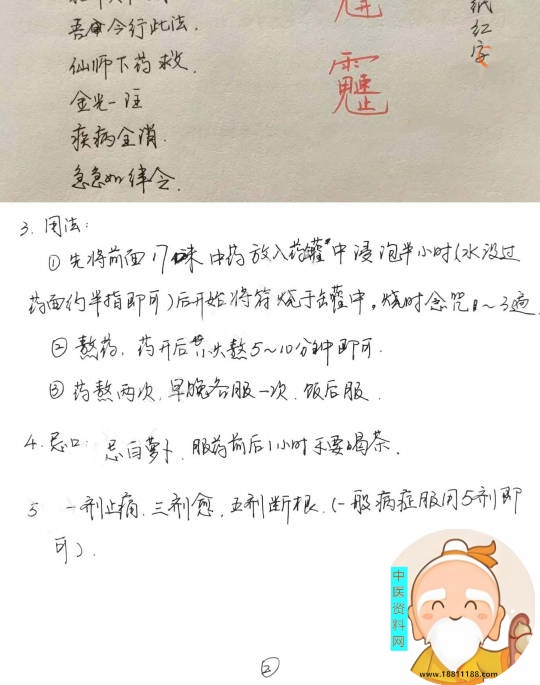 吾奉今行此法.
仙师下药救.
金光一注
疾病全消.
急急如律令.
纸红字
3. 用法:
① 先将前面17味中药放入药罐中浸泡半小时(水没过
药面约半指即可)后开始将符烧于去罐中,烧时念咒1~3遍
② 熬药,药开后熬5~10分钟即可.
③ 药熬两次,早晚各服一次,饭后服.
4. 忌口: 忌白萝卜,服药前后1小时不要喝茶.
5 一剂止痛,三剂愈,五剂断根,(一般病症服用5剂即
可).
中医资料网
www.18811188.com
②